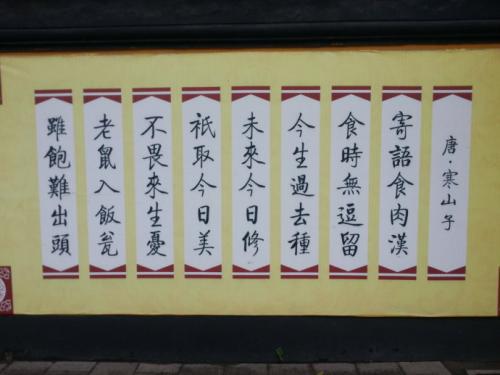 唐·寒山子
寄語食肉漢
食時無逗留
今生過去種
未來今日修
祇取今日美
不畏來生憂
老鼠入飯瓮
雖飽難出頭